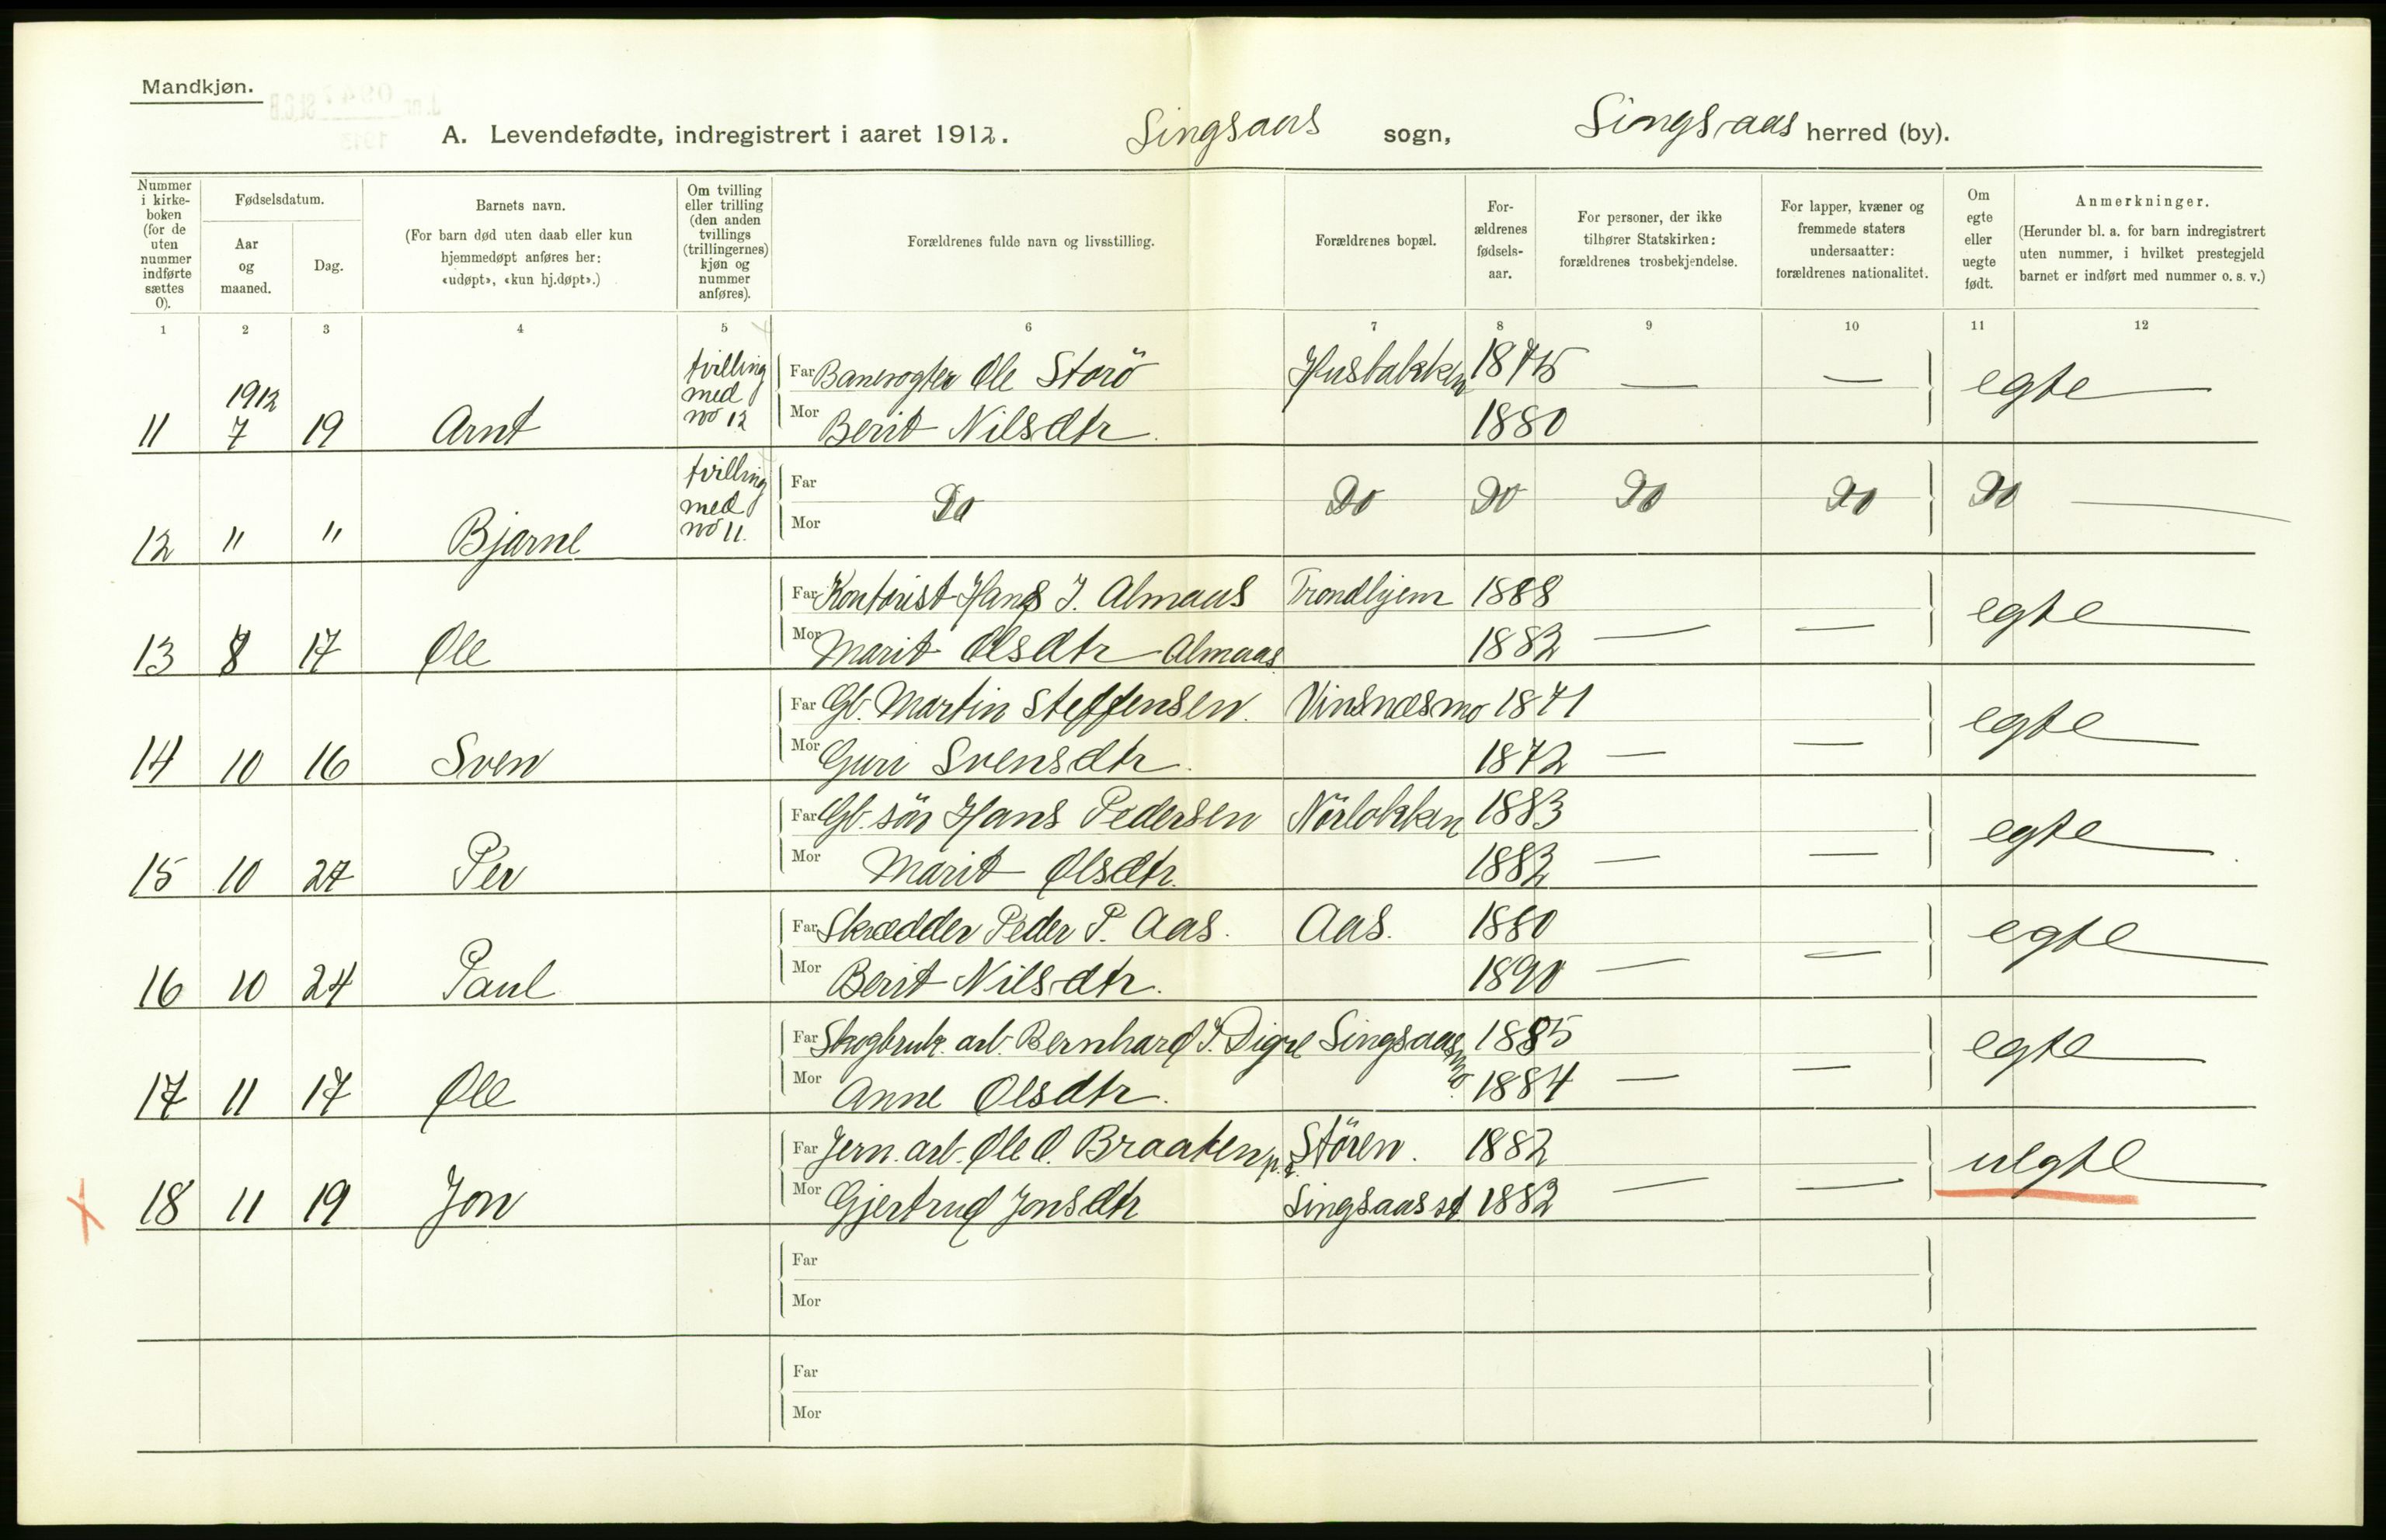 Mandkjøn.
A. Levendefødte, indregistrert i aaret 1912. Singsaas sogn, Singsaas herred (by).
Nummer i kirkeboken (for de uten nummer indførte sættes 0).
Fødselsdatum.
Aar og maaned.
Dag.
Barnets navn.
(For barn død uten daab eller kun hjemmedøpt anføres her: «udøpt», «kun hj.døpt».)
Om tvilling eller trilling (den anden tvillings (trillingernes) kjøn og nummer anføres).
Forældrenes fulde navn og livsstilling.
Forældrenes bopæl.
Forældrenes fødselsaar.
For personer, der ikke tilhører Statskirken: forældrenes trosbekjendelse.
For lapper, kvæner og fremmede staters undersaatter: forældrenes nationalitet.
Om egte eller uegte født.
Anmerkninger.
(Herunder bl. a. for barn indregistrert uten nummer, i hvilket prestegjeld barnet er indført med nummer o. s. v.)
1 2 3 4 5 6 7 8 9 10 11 12
tvilling med no 12
Far Banevogter Ole Storö Husbakken 1875 — — egte
1912
11 7 19 Arnt Mor Berit Nilsdtr. 1880
tvilling med no 11.
Far Do Do Do Do Do Do
12 " " Bjarne Mor
Far Kontorist Hans J. Almaas Trondhjem 1888 egte
13 8 17 Ole Mor Marit Olsdtr Almaas 1882 — —
Far Gb. Martin Steffensen. Vinsnesmo 1871 egte
14 10 16 Sven Mor Guri Svensdtr. 1872 — —
Far Gb. sön Hans Pedersen Nörløkken 1883 egte
15 10 27 Per Mor Marit Olsdtr. 1882 — —
Far Skrædder Peder P. Aas. Aas. 1880 egte
16 10 24 Paul Mor Berit Nilsdtr. 1890 — —
Far Skogbruk. arb. Bernhard J. Digre Singsaasmo 1885 egte
17 11 17 Ole Mor Anne Olsdtr. 1884 — —
Far Jern. arb. Ole O. Braaten p.t. Stören. 1882 uegte
18 11 19 Jon Mor Gjertrud Jonsdtr Singsaas st 1882 — —
Far
Mor
Far
Mor